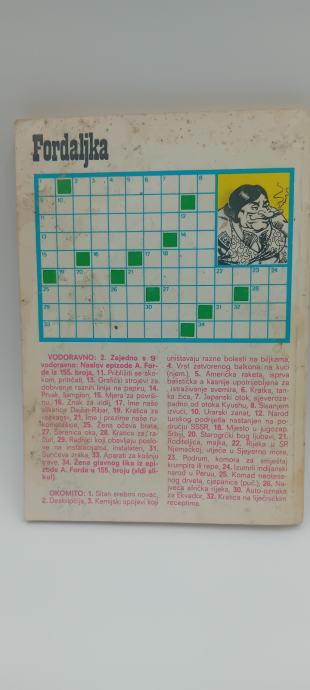 Fordaljka
VODORAVNO: 2. Zajedno s 9
vodoravno: Naslov epizode A. For-
da iz 155. broja, 11. Približiti se sko-
kom, pritrčati, 13. Grafički strojevi za
dobivanje raznih linija na papiru, 14.
Prvak, šampion, 15. Mjera za površi-
nu, 16. Znak za zlidij, 17. Ime naše
slikarice Ribar, 19. Kratica za
21. Ime i prezime naše
25. Žena očeva brata,
27. Šarenica oka, 28. Kratica za
29. Radnici koji obavljaju poslo-
ve na instalacijama, instalateri, 31.
Sunčeva zraka, 33. Aparati za košnju
trave, 34. Žena glavnog lika iz epi-
zode A. Forda u 155. broju (vidi sli-
ku!).
OKOMITO: 1. Sitan srebrni novac,
2. 3. Kemijski spojevi koji
uništavaju razne bolesti na biljkama,
4. Vrst zatvorenog balkona na kući
(njem.), 5. Američka raketa, isprva
balistička a kasnije upotrijebljena za
istraživanje svemira, 6. Kratka, tan-
ka žica, 7. Japanski otok, sjeveroza-
padno od otoka Kyushu, 8. Skanjem
izvući, 10. Uralski zaret, 12. Narod
turskog podrijetla nastanjen na po-
dručju SSSR, 18. Mjesto u jugozap.
Srbiji, 20. Starogrčki bog ljubavi, 21.
Roditeljica, majka, 22. Rijeka u SR
Njemačkoj, utječe u Sjeverno more,
23. Podrum, komora za smještaj
krumpira ili repe, 24. Izumrli indijanski
narod u Peruu, 25. Komad neotesa-
nog drveta, cjepanica (puč.), 26. Naj-
veća afrička rijeka, 30. Auto-oznaka
za Ekvador, 32. Kratica na liječničkim
receptima.